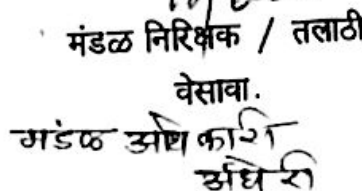 मंडळ निरिक्षक / तलाठी
वेसावा.
मंडळ अधिकारी
अंधेरी